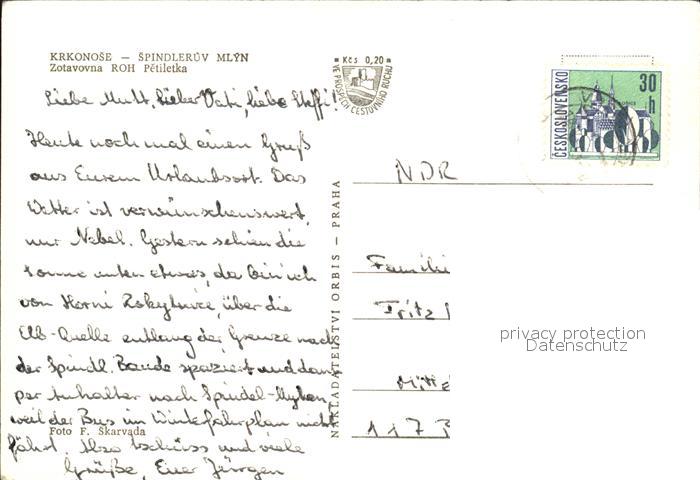 KRKONOŠE — ŠPINDLERŮV MLÝN
Zotavovna ROH Pětiletka
Kčs 0,20
VE PROSPĚCH CESTOVNÍHO RUCHU
ČESKOSLOVENSKO
30 h
Liebe Mutt, lieber Vati, liebe Steffi!
Heute noch mal einen Gruß
aus Eurem Urlaubsort. Das
Wetter ist verwünschenswert,
nur Nebel. Gestern schien die
Sonne unten etwas, da bin ich
von Horni Rokytnice, über die
Elb-Quelle entlang der Grenze nach
der Spindl. Baude spaziert und dann
per Anhalter nach Spindel-Mühen,
weil der Bus im Winterfahrplan nicht
fährt. Also tschüss und viele
Grüße, Euer Jürgen
Foto F. Škarvada
NAKLADATELSTVÍ ORBIS — PRAHA
NDR
Famili
Fritz
Mitte
117
privacy protection
Datenschutz